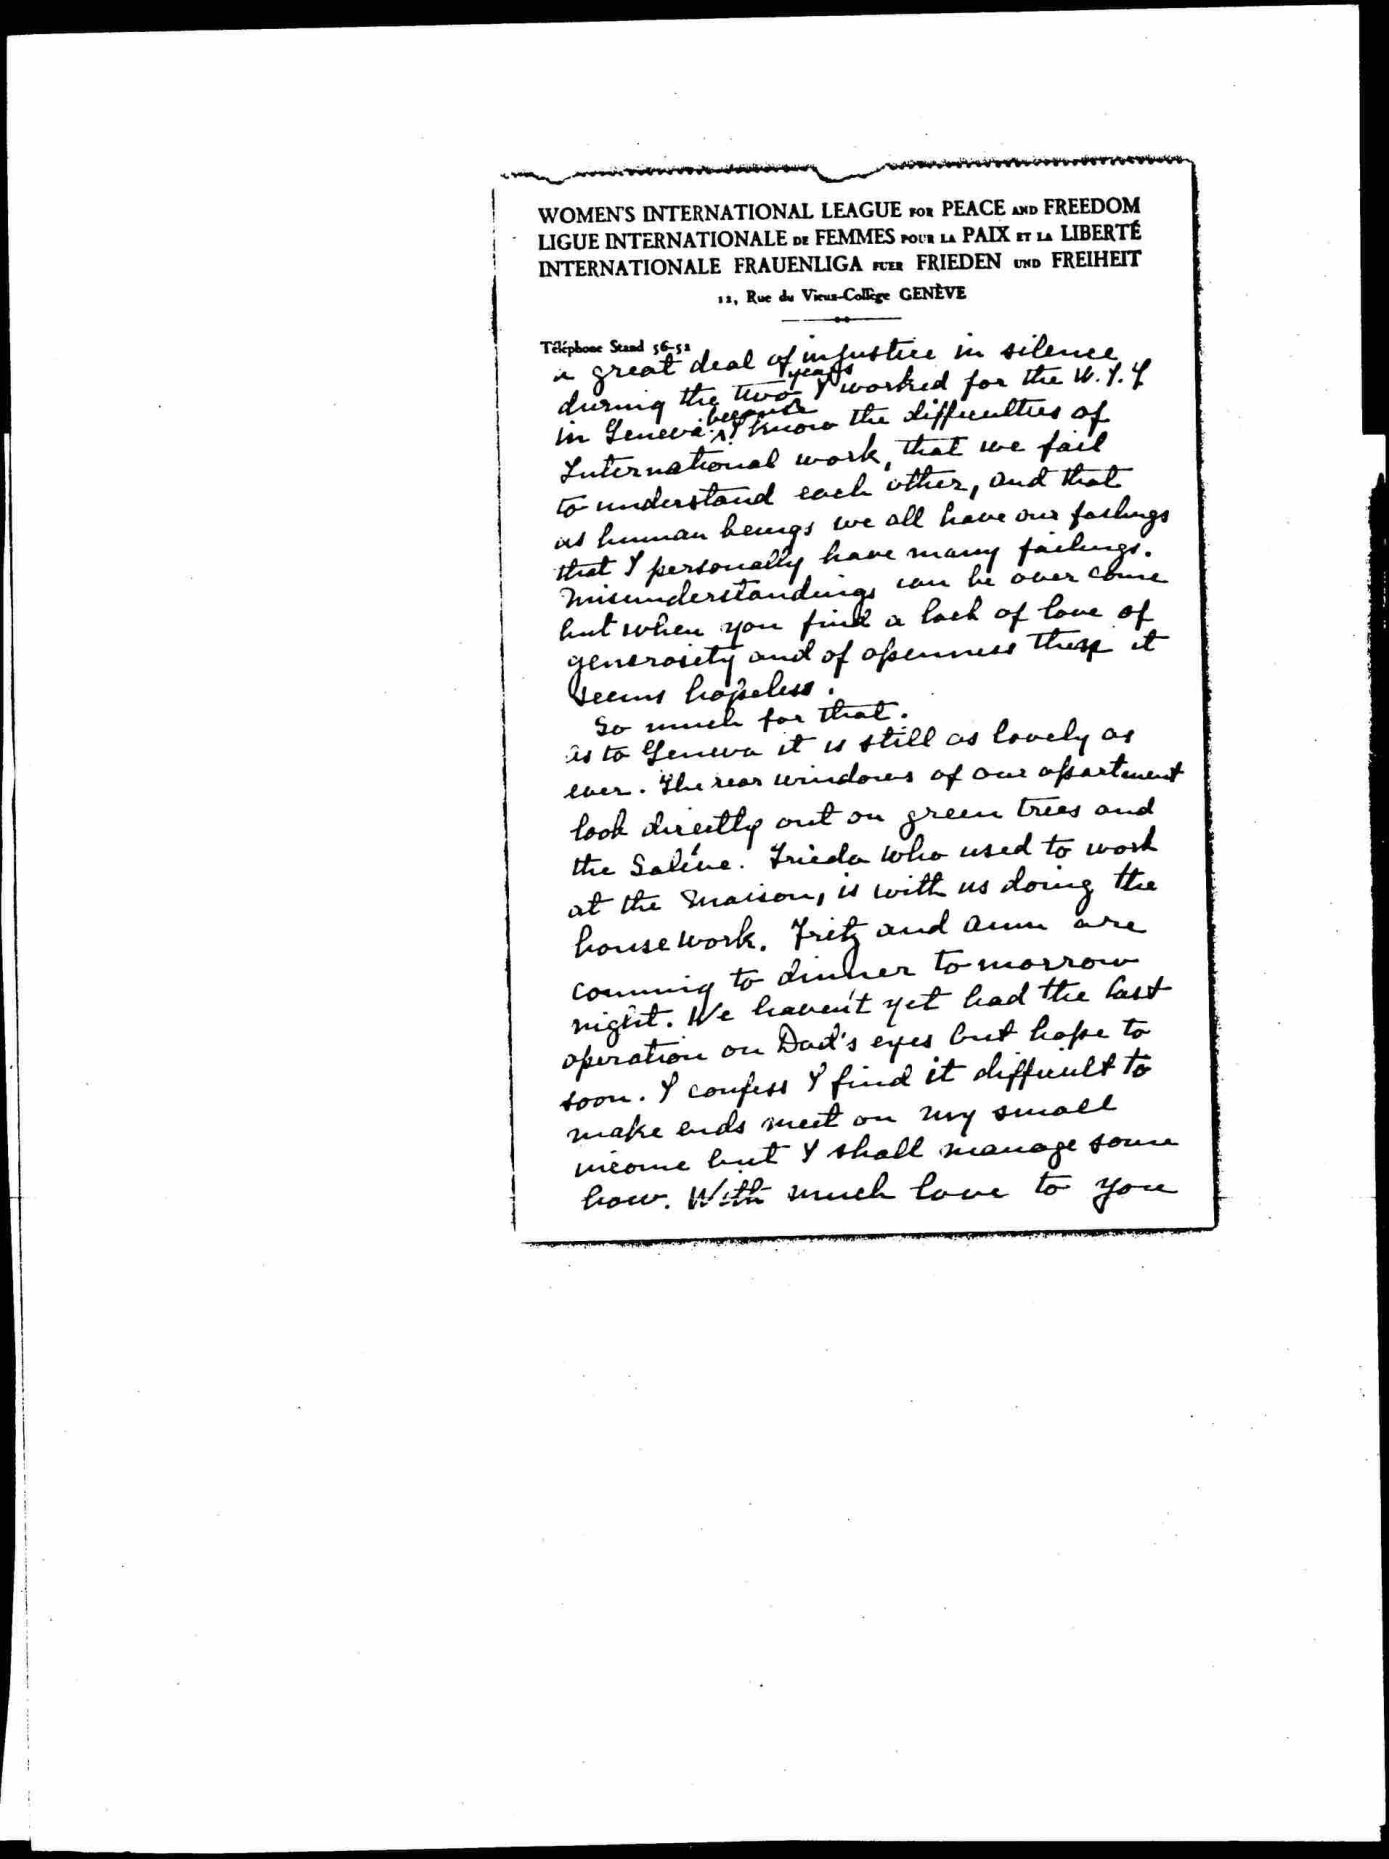 WOMEN'S INTERNATIONAL LEAGUE FOR PEACE AND FREEDOM
LIGUE INTERNATIONALE DE FEMMES POUR LA PAIX ET LA LIBERTÉ
INTERNATIONALE FRAUENLIGA FUER FRIEDEN UND FREIHEIT
12, Rue du Vieux-Collège GENÈVE
Téléphone Stand 56-52
a great deal of injustice in silence
years
during the two I worked for the W.I.L
because
in Geneva I know the difficulties of
International work, that we fail
to understand each other, and that
as human beings we all have our failings
that I personally have many failings.
Misunderstandings can be over come
but when you find a lack of love of
generosity and of openness then it
seems hopeless.
So much for that.
As to Geneva it is still as lovely as
ever. The rear windows of our apartment
look directly out on green trees and
the Salève. Frieda who used to work
at the Maison, is with us doing the
house work. Fritz and Ann are
comming to dinner tomorrow
night. We haven't yet had the last
operation on Dad's eyes but hope to
soon. I confess I find it difficult to
make ends meet on my small
income but I shall manage some
how. With much love to you